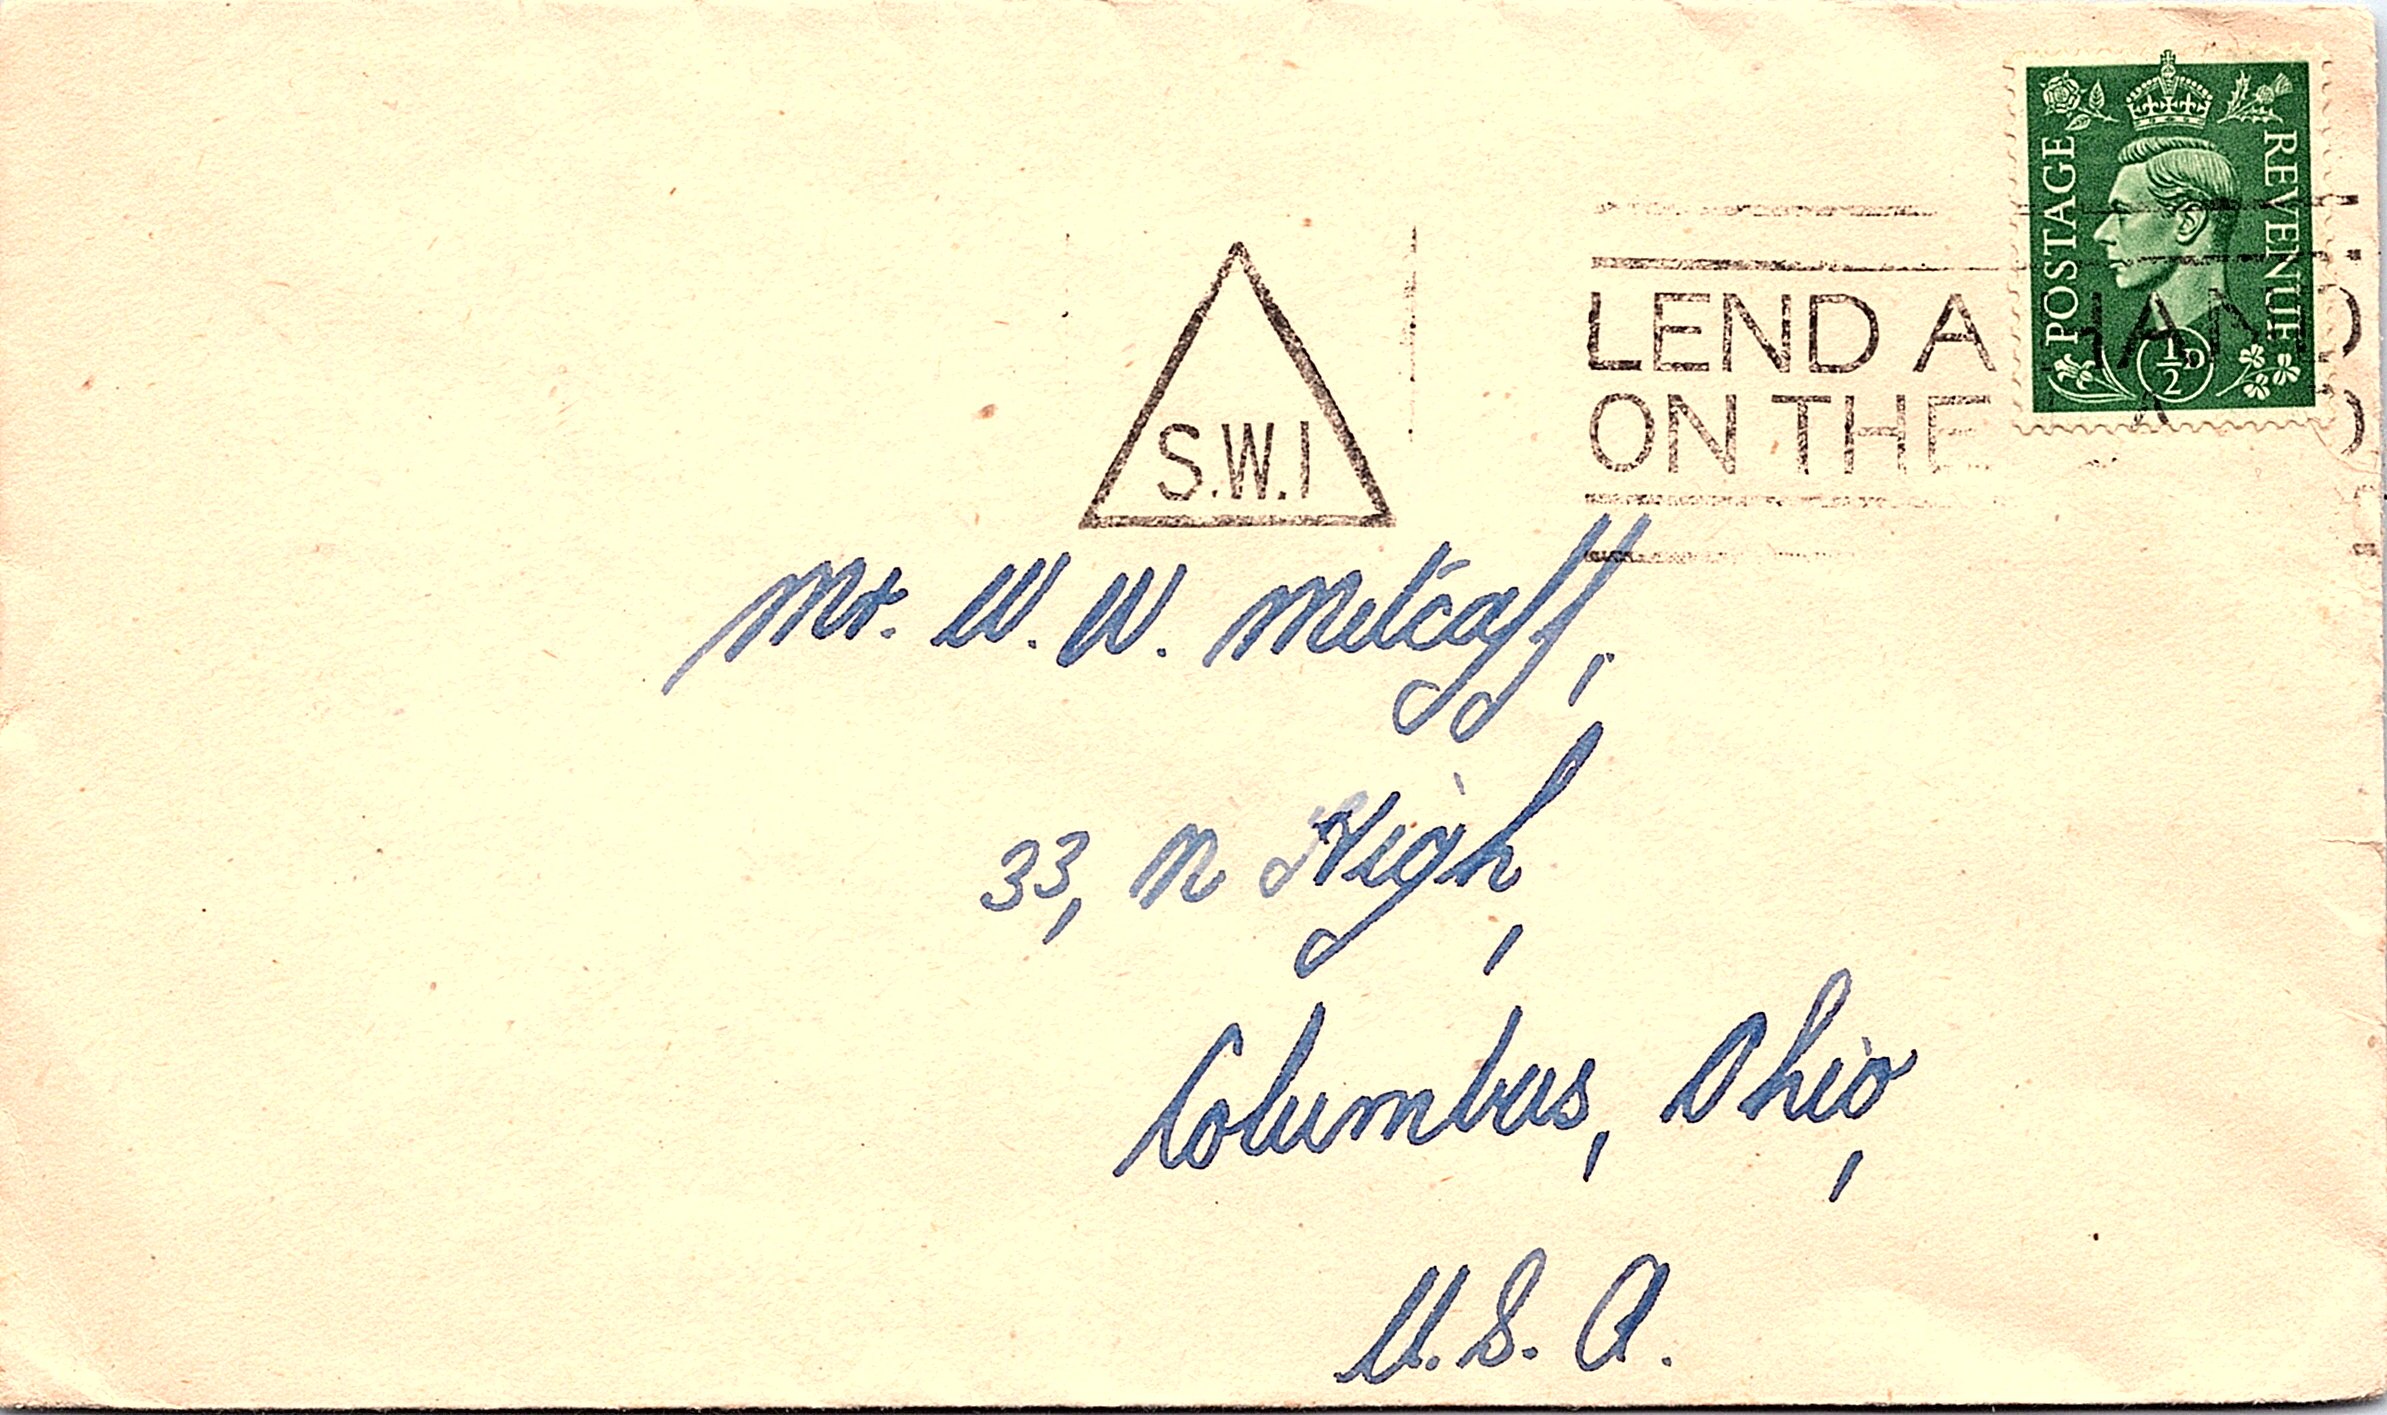 POSTAGE
REVENUE
1/2 D
LEND A HAND
ON THE
S.W.1
Mr. W. W. Metcalf,
33, N High,
Columbus, Ohio,
U.S.A.